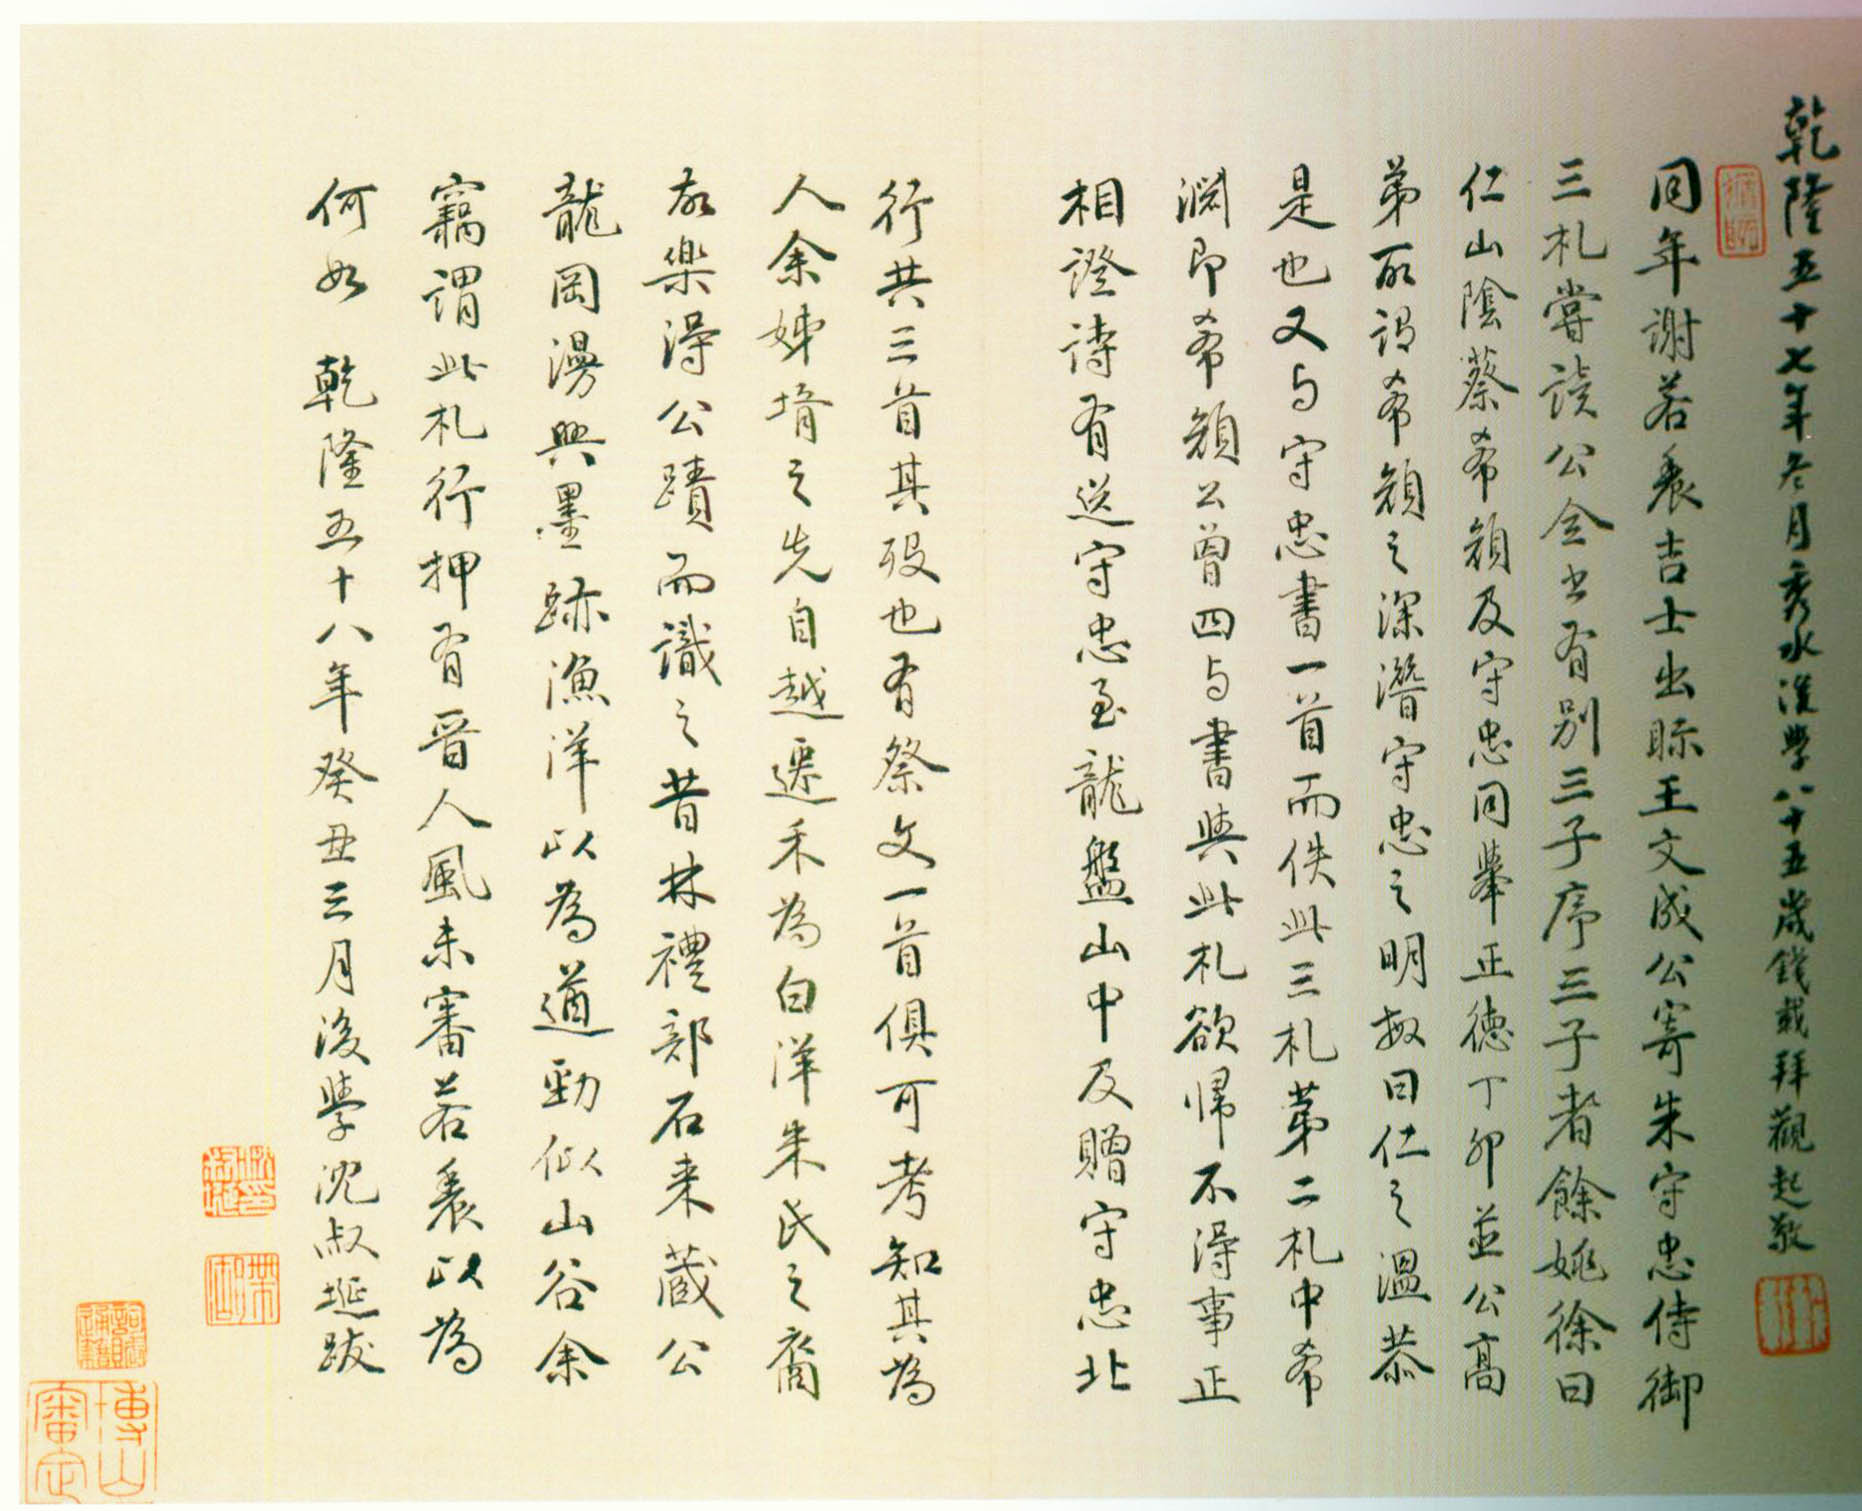 乾隆五十七年冬月秀水後學八十五歲錢載拜觀起敬
同年謝若農吉士出眎王文成公寄朱守忠侍御
三札嘗讀公全書有別三子序三子者餘姚徐曰
仁山陰蔡希顏及守忠同舉正德丁卯並公高
弟所謂希顏之深潛守忠之明敏曰仁之溫恭
是也又与守忠書一首而佚此三札第二札中希
淵即希顏公曾四与書與此札欲歸不得事正
相證詩有送守忠至龍盤山中及贈守忠北
行共三首其歿也有祭文一首俱可考知其為
人余姊壻之先自越遷禾為白洋朱氏之裔
故樂得公蹟而識之昔林禮部石來藏公
龍岡漫興墨跡漁洋以為遒勁似山谷余
竊謂此札行押有晉人風未審若農以為
何如 乾隆五十八年癸丑三月後學沈叔埏跋
博山
審定